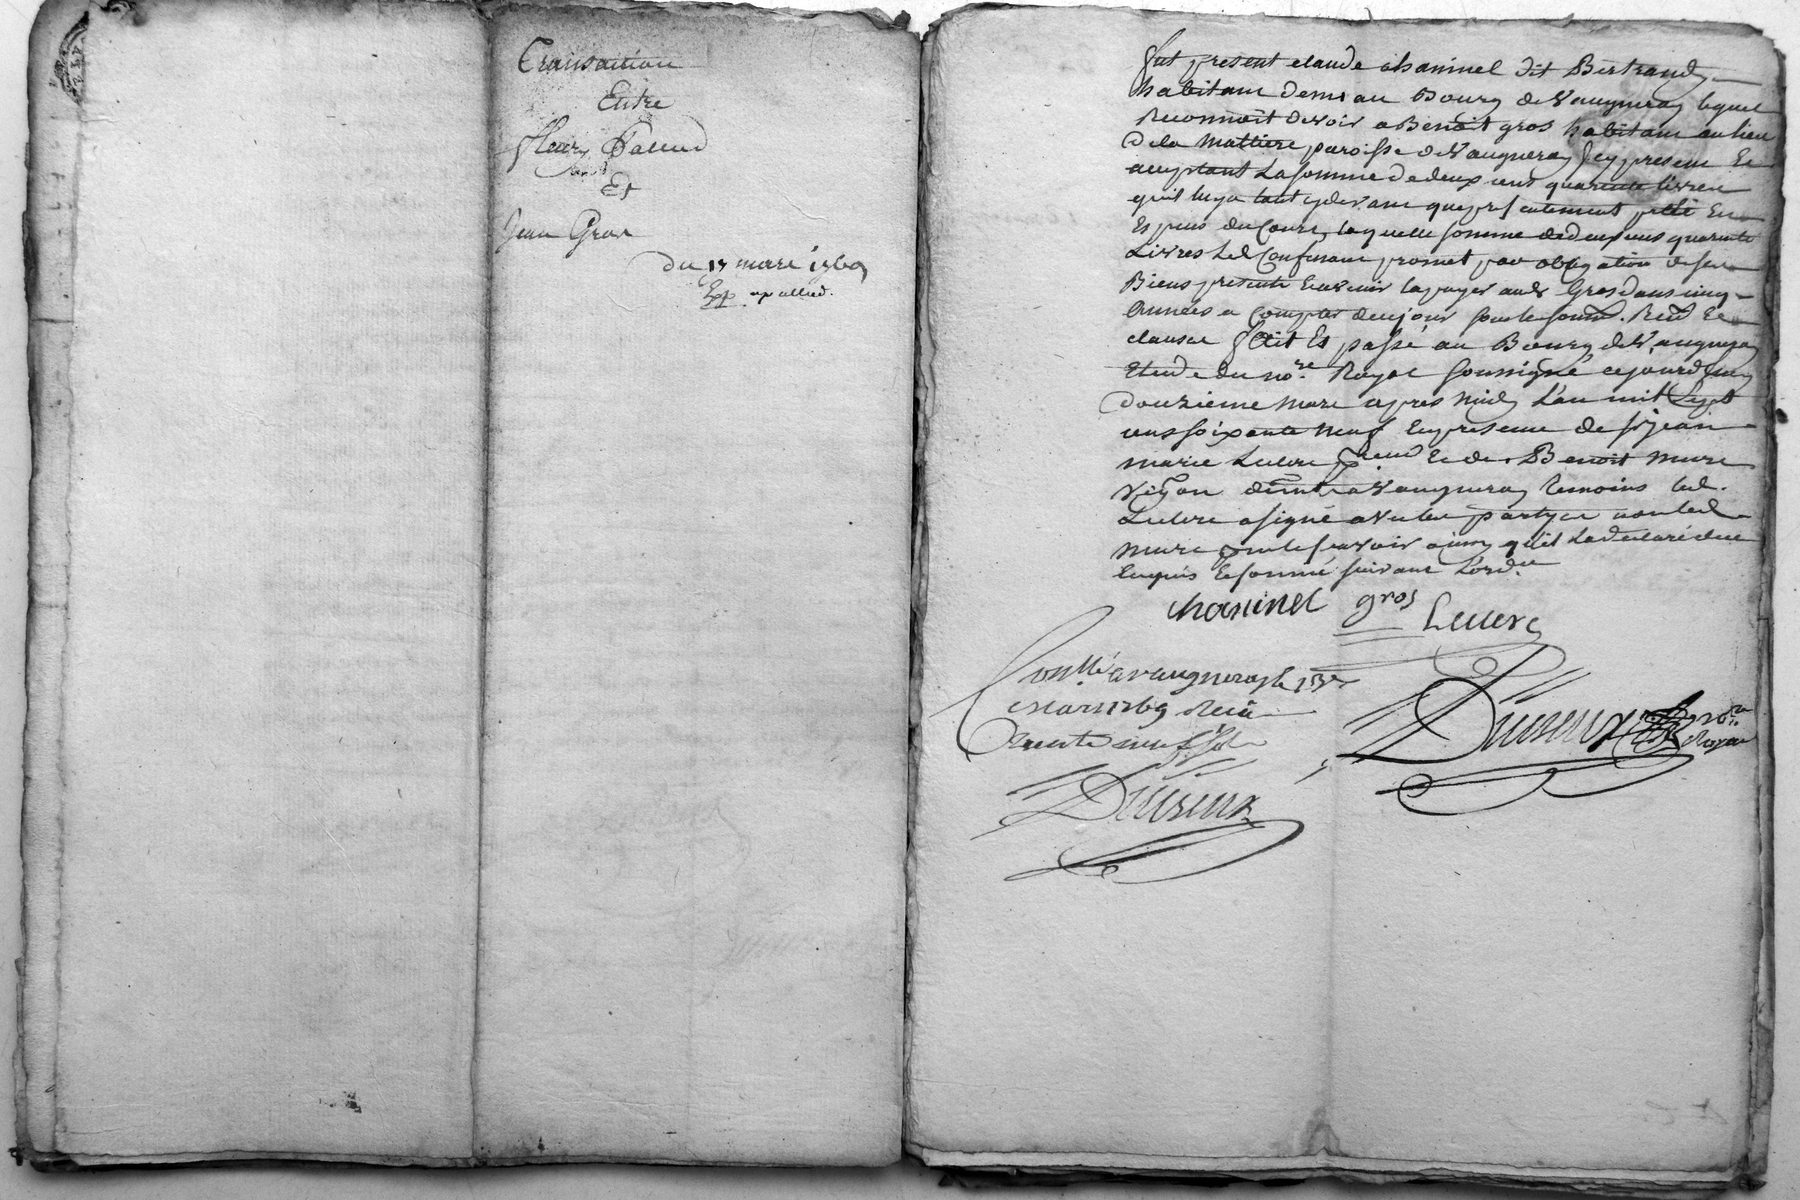 Transaction
Entre
fleury
Et
Jean Gros
du 13 mars 1769
Exp.
fut present claude chaninel dit Bertrand
habitant demt au Bourg de Vaugneray lequel
Reconnoit devoir a Benoit gros habitant au lieu
De la Mattiere paroisse de Vaugneray icy present Et
acceptant La somme de deux cent quarente livres
qu'il luy a tant cy devant que presentement En
Espece du Cours, laquelle somme de deux cens quarente
Livres Led Confessant promet par obligation de ses
Biens presents Et avenir la payer aud Gros dans cinq
Années a Compter de ce jour
clauses fait Et passé au Bourg de Vaugneray
Etude du nore Royal soussigné cejourd'huy
douzieme mars apres midy L'an mil Sept
cens soixante neuf En presence de sr jean
marie Leclerc Et de Benoit mure
demt a Vaugneray temoins led.
Leclerc a signé avec les partyes non led
mure pour ne scavoir ainsy qu'il La declaré de ce
Enquis Et sommé suivant L'ordce
chaninel gros Leclerc
Conllé a vaugneray le 13e
mars 1769 Recu
trente neuf sols
nore
Royal